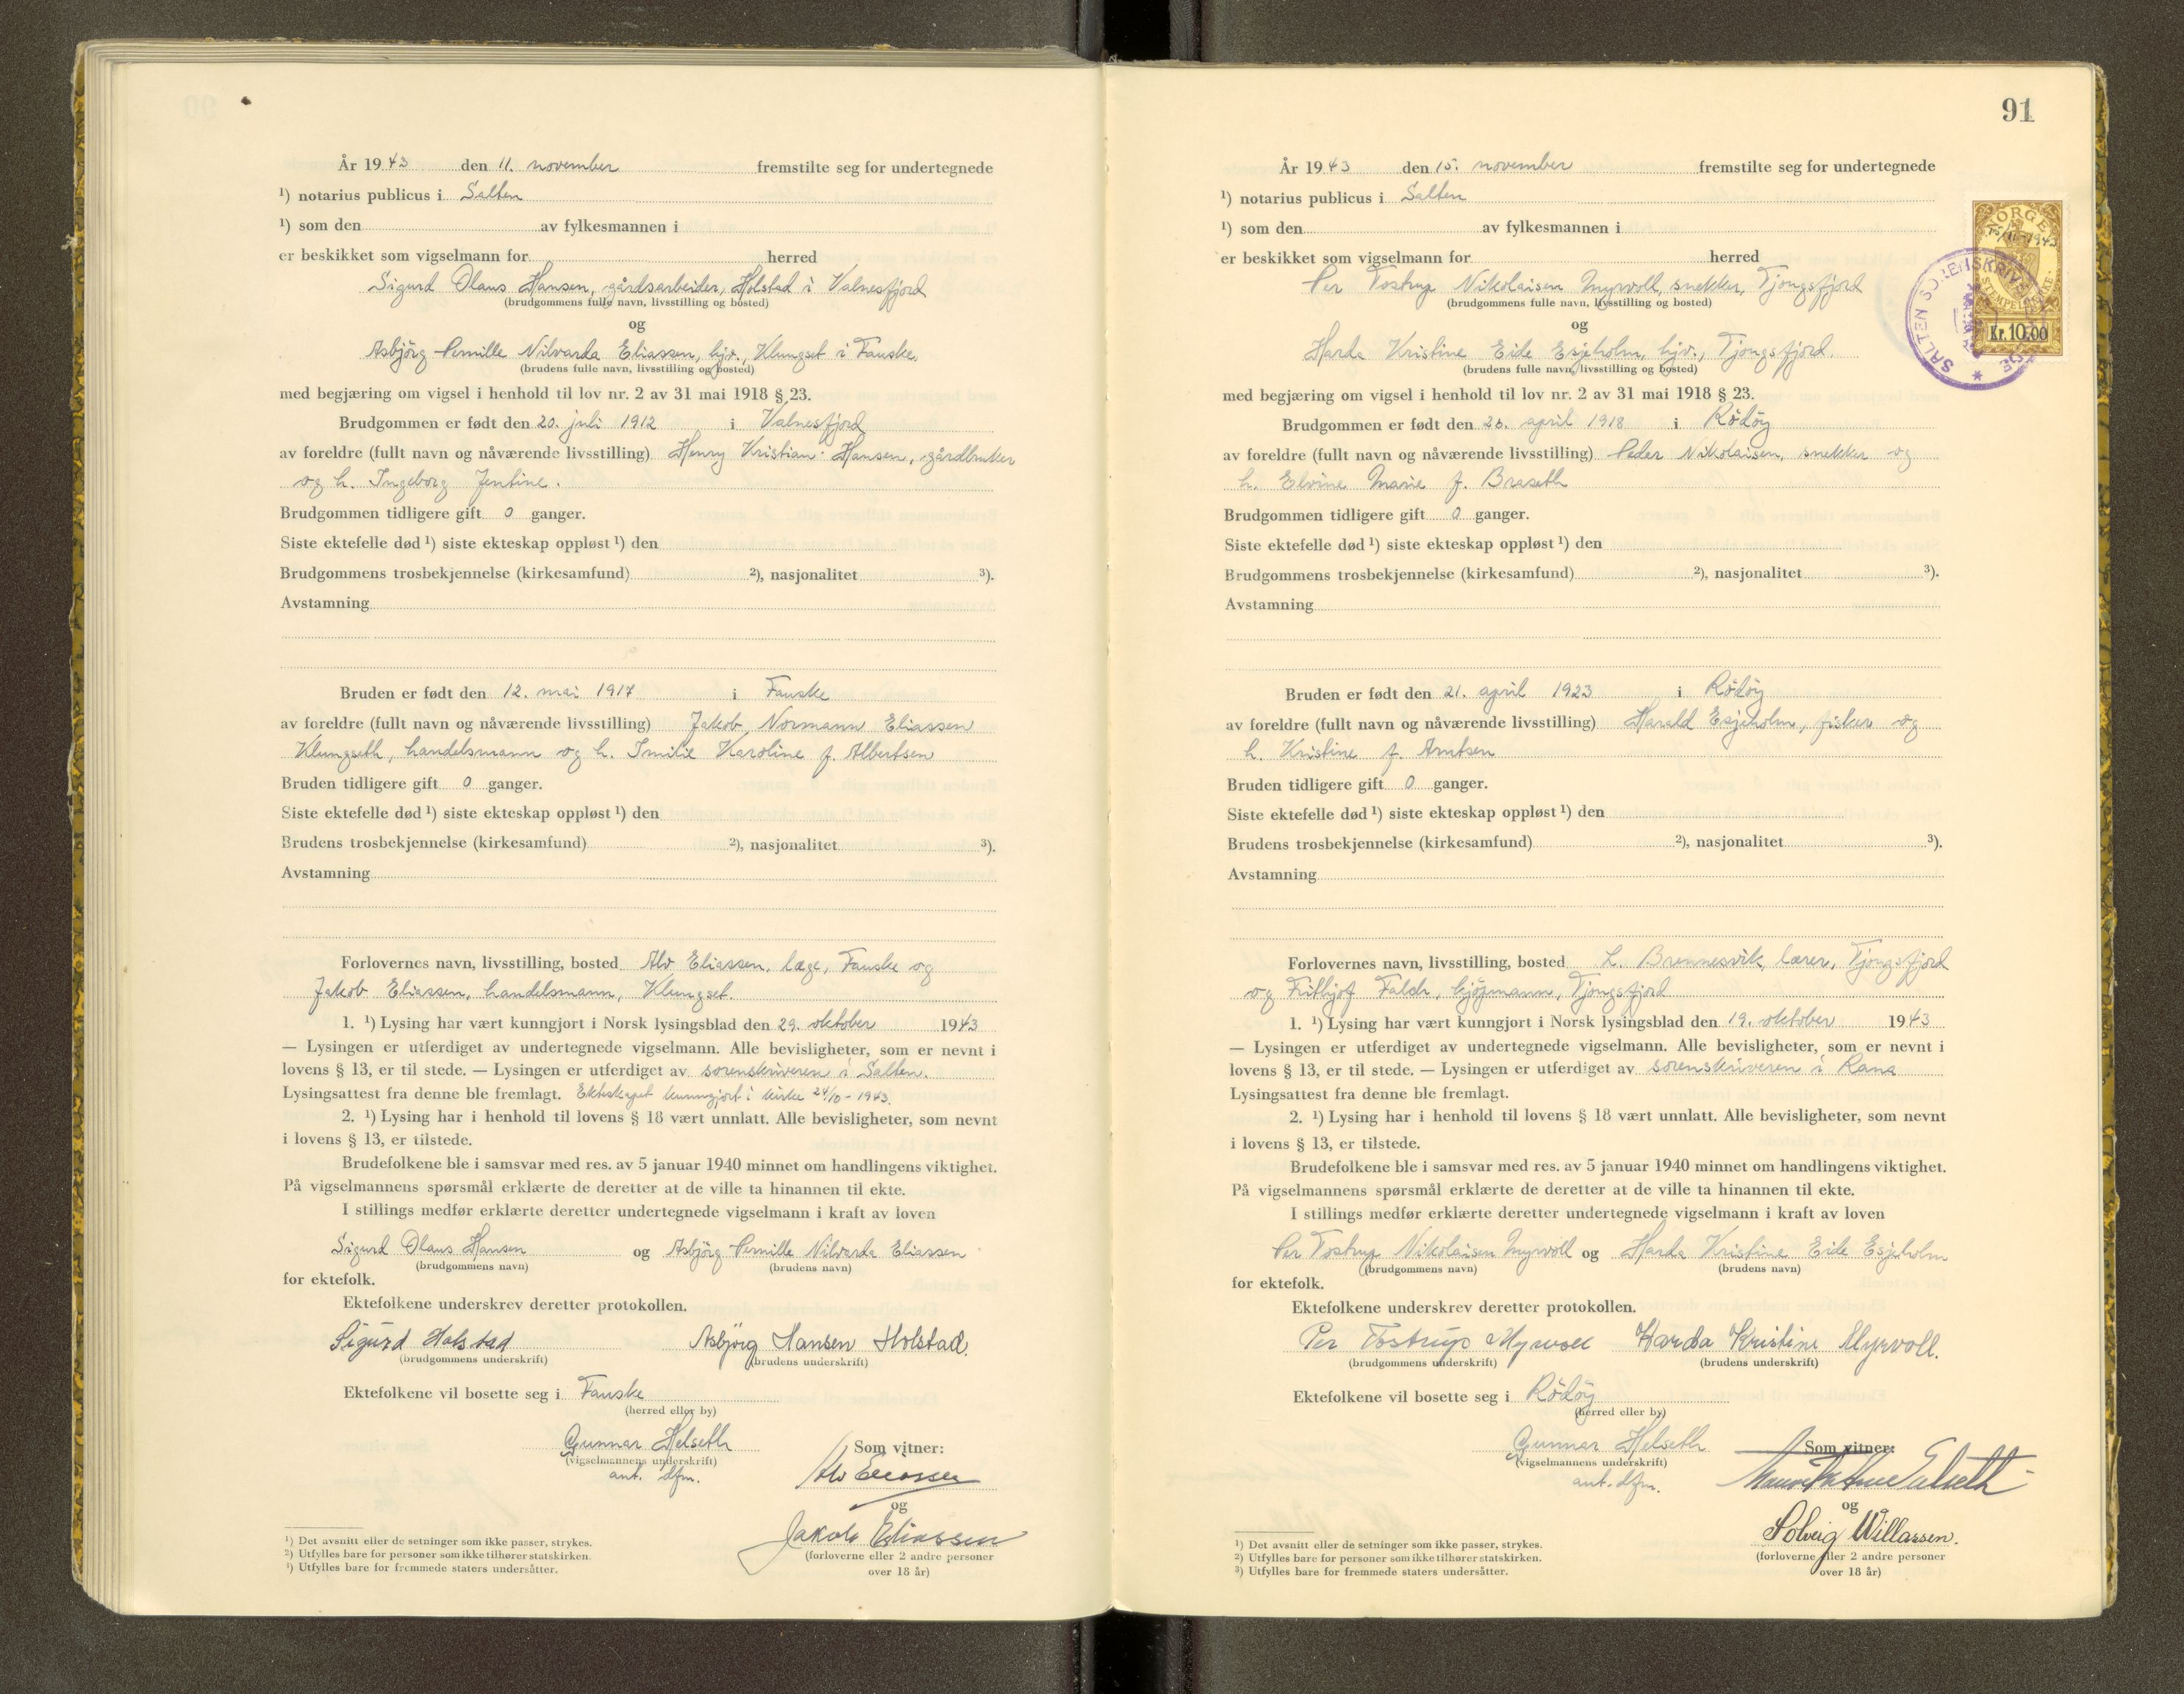 År 1943 den 11. november fremstilte seg for undertegnede
¹) notarius publicus i Salten
¹) som den av fylkesmannen i
er beskikket som vigselmann for herred
Sigurd Olaus Hansen, gårdsarbeider, Holstad i Valnesfjord
(brudgommens fulle navn, livsstilling og bosted)
og
Asbjörg Pernille Nilvarda Eliassen, hjv., Klungset i Fauske.
(brudens fulle navn, livsstilling og bosted)
med begjæring om vigsel i henhold til lov nr. 2 av 31 mai 1918 § 23.
Brudgommen er født den 20. juli 1912 i Valnesfjord
av foreldre (fullt navn og nåværende livsstilling) Henry Kristian Hansen, gårdbruker
og h. Ingeborg Jentine.
Brudgommen tidligere gift 0 ganger.
Siste ektefelle død ¹) siste ekteskap oppløst ¹) den
Brudgommens trosbekjennelse (kirkesamfund) ²), nasjonalitet ³).
Avstamning
Bruden er født den 12. mai 1917 i Fauske
av foreldre (fullt navn og nåværende livsstilling) Jakob Normann Eliassen
Klungseth, handelsmann og h. Emilie Karoline f. Albertsen
Bruden tidligere gift 0 ganger.
Siste ektefelle død ¹) siste ekteskap oppløst ¹) den
Brudens trosbekjennelse (kirkesamfund) ²), nasjonalitet ³).
Avstamning
Forlovernes navn, livsstilling, bosted Alv Eliassen, læge, Fauske og
Jakob Eliassen, handelsmann, Klungset.
1. ¹) Lysing har vært kunngjort i Norsk lysingsblad den 29. oktober 1943
— Lysingen er utferdiget av undertegnede vigselmann. Alle bevisligheter, som er nevnt i
lovens § 13, er til stede. — Lysingen er utferdiget av sorenskriveren i Salten.
Lysingsattest fra denne ble fremlagt. Ekteskapet kunngjort i kirke 24/10-1943.
2. ¹) Lysing har i henhold til lovens § 18 vært unnlatt. Alle bevisligheter, som nevnt
i lovens § 13, er tilstede.
Brudefolkene ble i samsvar med res. av 5 januar 1940 minnet om handlingens viktighet.
På vigselmannens spørsmål erklærte de deretter at de ville ta hinannen til ekte.
I stillings medfør erklærte deretter undertegnede vigselmann i kraft av loven
Sigurd Olaus Hansen og Asbjörg Pernille Nilvarda Eliassen
(brudgommens navn) (brudens navn)
for ektefolk.
Ektefolkene underskrev deretter protokollen.
Sigurd Holstad Asbjörg Hansen Holstad.
(brudgommens underskrift) (brudens underskrift)
Ektefolkene vil bosette seg i Fauske
(herred eller by)
Gunnar Helseth Som vitner:
(vigselmannens underskrift)
aut. dfm. Alv Eliassen
og
Jakob Eliassen
(forloverne eller 2 andre personer
over 18 år)
¹) Det avsnitt eller de setninger som ikke passer, strykes.
²) Utfylles bare for personer som ikke tilhører statskirken.
³) Utfylles bare for fremmede staters undersåtter.
91
År 1943 den 15. november fremstilte seg for undertegnede
¹) notarius publicus i Salten
¹) som den av fylkesmannen i
er beskikket som vigselmann for herred
Per Tostrup Nikolaisen Myrvoll, snekker, Tjongsfjord
(brudgommens fulle navn, livsstilling og bosted)
og
Harda Kristine Eide Esjeholm, hjv., Tjongsfjord.
(brudens fulle navn, livsstilling og bosted)
NORGE
15/11-1943
STEMPELMERKE
Kr. 10,00
SALTEN SORENSKRIVER
med begjæring om vigsel i henhold til lov nr. 2 av 31 mai 1918 § 23.
Brudgommen er født den 26. april 1918 i Rödöy
av foreldre (fullt navn og nåværende livsstilling) Peder Nikolaisen, snekker og
h. Elvine Marie f. Braseth
Brudgommen tidligere gift 0 ganger.
Siste ektefelle død ¹) siste ekteskap oppløst ¹) den
Brudgommens trosbekjennelse (kirkesamfund) ²), nasjonalitet ³).
Avstamning
Bruden er født den 21. april 1923 i Rödöy
av foreldre (fullt navn og nåværende livsstilling) Harald Esjeholm, fisker og
h. Kristine f. Arntsen
Bruden tidligere gift 0 ganger.
Siste ektefelle død ¹) siste ekteskap oppløst ¹) den
Brudens trosbekjennelse (kirkesamfund) ²), nasjonalitet ³).
Avstamning
Forlovernes navn, livsstilling, bosted L. Brennesvik, lærer, Tjongsfjord
og Frithjof Falch, kjöpmann, Tjongsfjord
1. ¹) Lysing har vært kunngjort i Norsk lysingsblad den 19. oktober 1943
— Lysingen er utferdiget av undertegnede vigselmann. Alle bevisligheter, som er nevnt i
lovens § 13, er til stede. — Lysingen er utferdiget av sorenskriveren i Rana
Lysingsattest fra denne ble fremlagt.
2. ¹) Lysing har i henhold til lovens § 18 vært unnlatt. Alle bevisligheter, som nevnt
i lovens § 13, er tilstede.
Brudefolkene ble i samsvar med res. av 5 januar 1940 minnet om handlingens viktighet.
På vigselmannens spørsmål erklærte de deretter at de ville ta hinannen til ekte.
I stillings medfør erklærte deretter undertegnede vigselmann i kraft av loven
Per Tostrup Nikolaisen Myrvoll og Harda Kristine Eide Esjeholm
(brudgommens navn) (brudens navn)
for ektefolk.
Ektefolkene underskrev deretter protokollen.
Per Tostrup Myrvoll Harda Kristine Myrvoll.
(brudgommens underskrift) (brudens underskrift)
Ektefolkene vil bosette seg i Rödöy
(herred eller by)
Gunnar Helseth Som vitner:
(vigselmannens underskrift)
aut. dfm.
og
Solveig Willassen.
(forloverne eller 2 andre personer
over 18 år)
¹) Det avsnitt eller de setninger som ikke passer, strykes.
²) Utfylles bare for personer som ikke tilhører statskirken.
³) Utfylles bare for fremmede staters undersåtter.